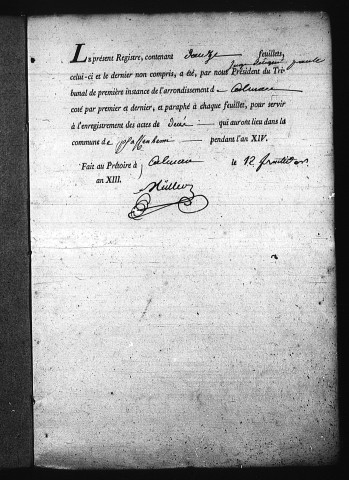 Le présent Registre, contenant douze feuillets,
celui-ci et le dernier non compris, a été, par nous Président du Tri-
bunal de première instance de l'arrondissement de Colmar
coté par premier et dernier, et paraphé à chaque feuillet, pour servir
à l'enregistrement des actes de décès qui auront lieu dans la
commune de pfaffenheim pendant l'an XIV.
Fait au Prétoire à Colmar le 12 fructidor
an XIII.
Müller